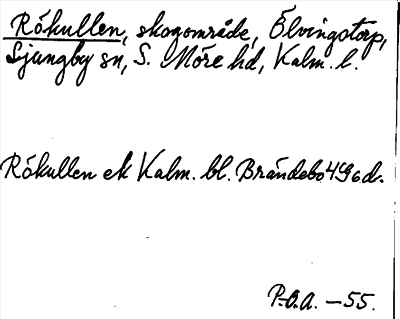 Rökullen, skogområde, Ölvingstorp,
Ljungby sn, S. Möre hd, Kalm. l.
Rökullen ek Kalm. bl. Brändebo 4G6d.
P.O.A. – 55.